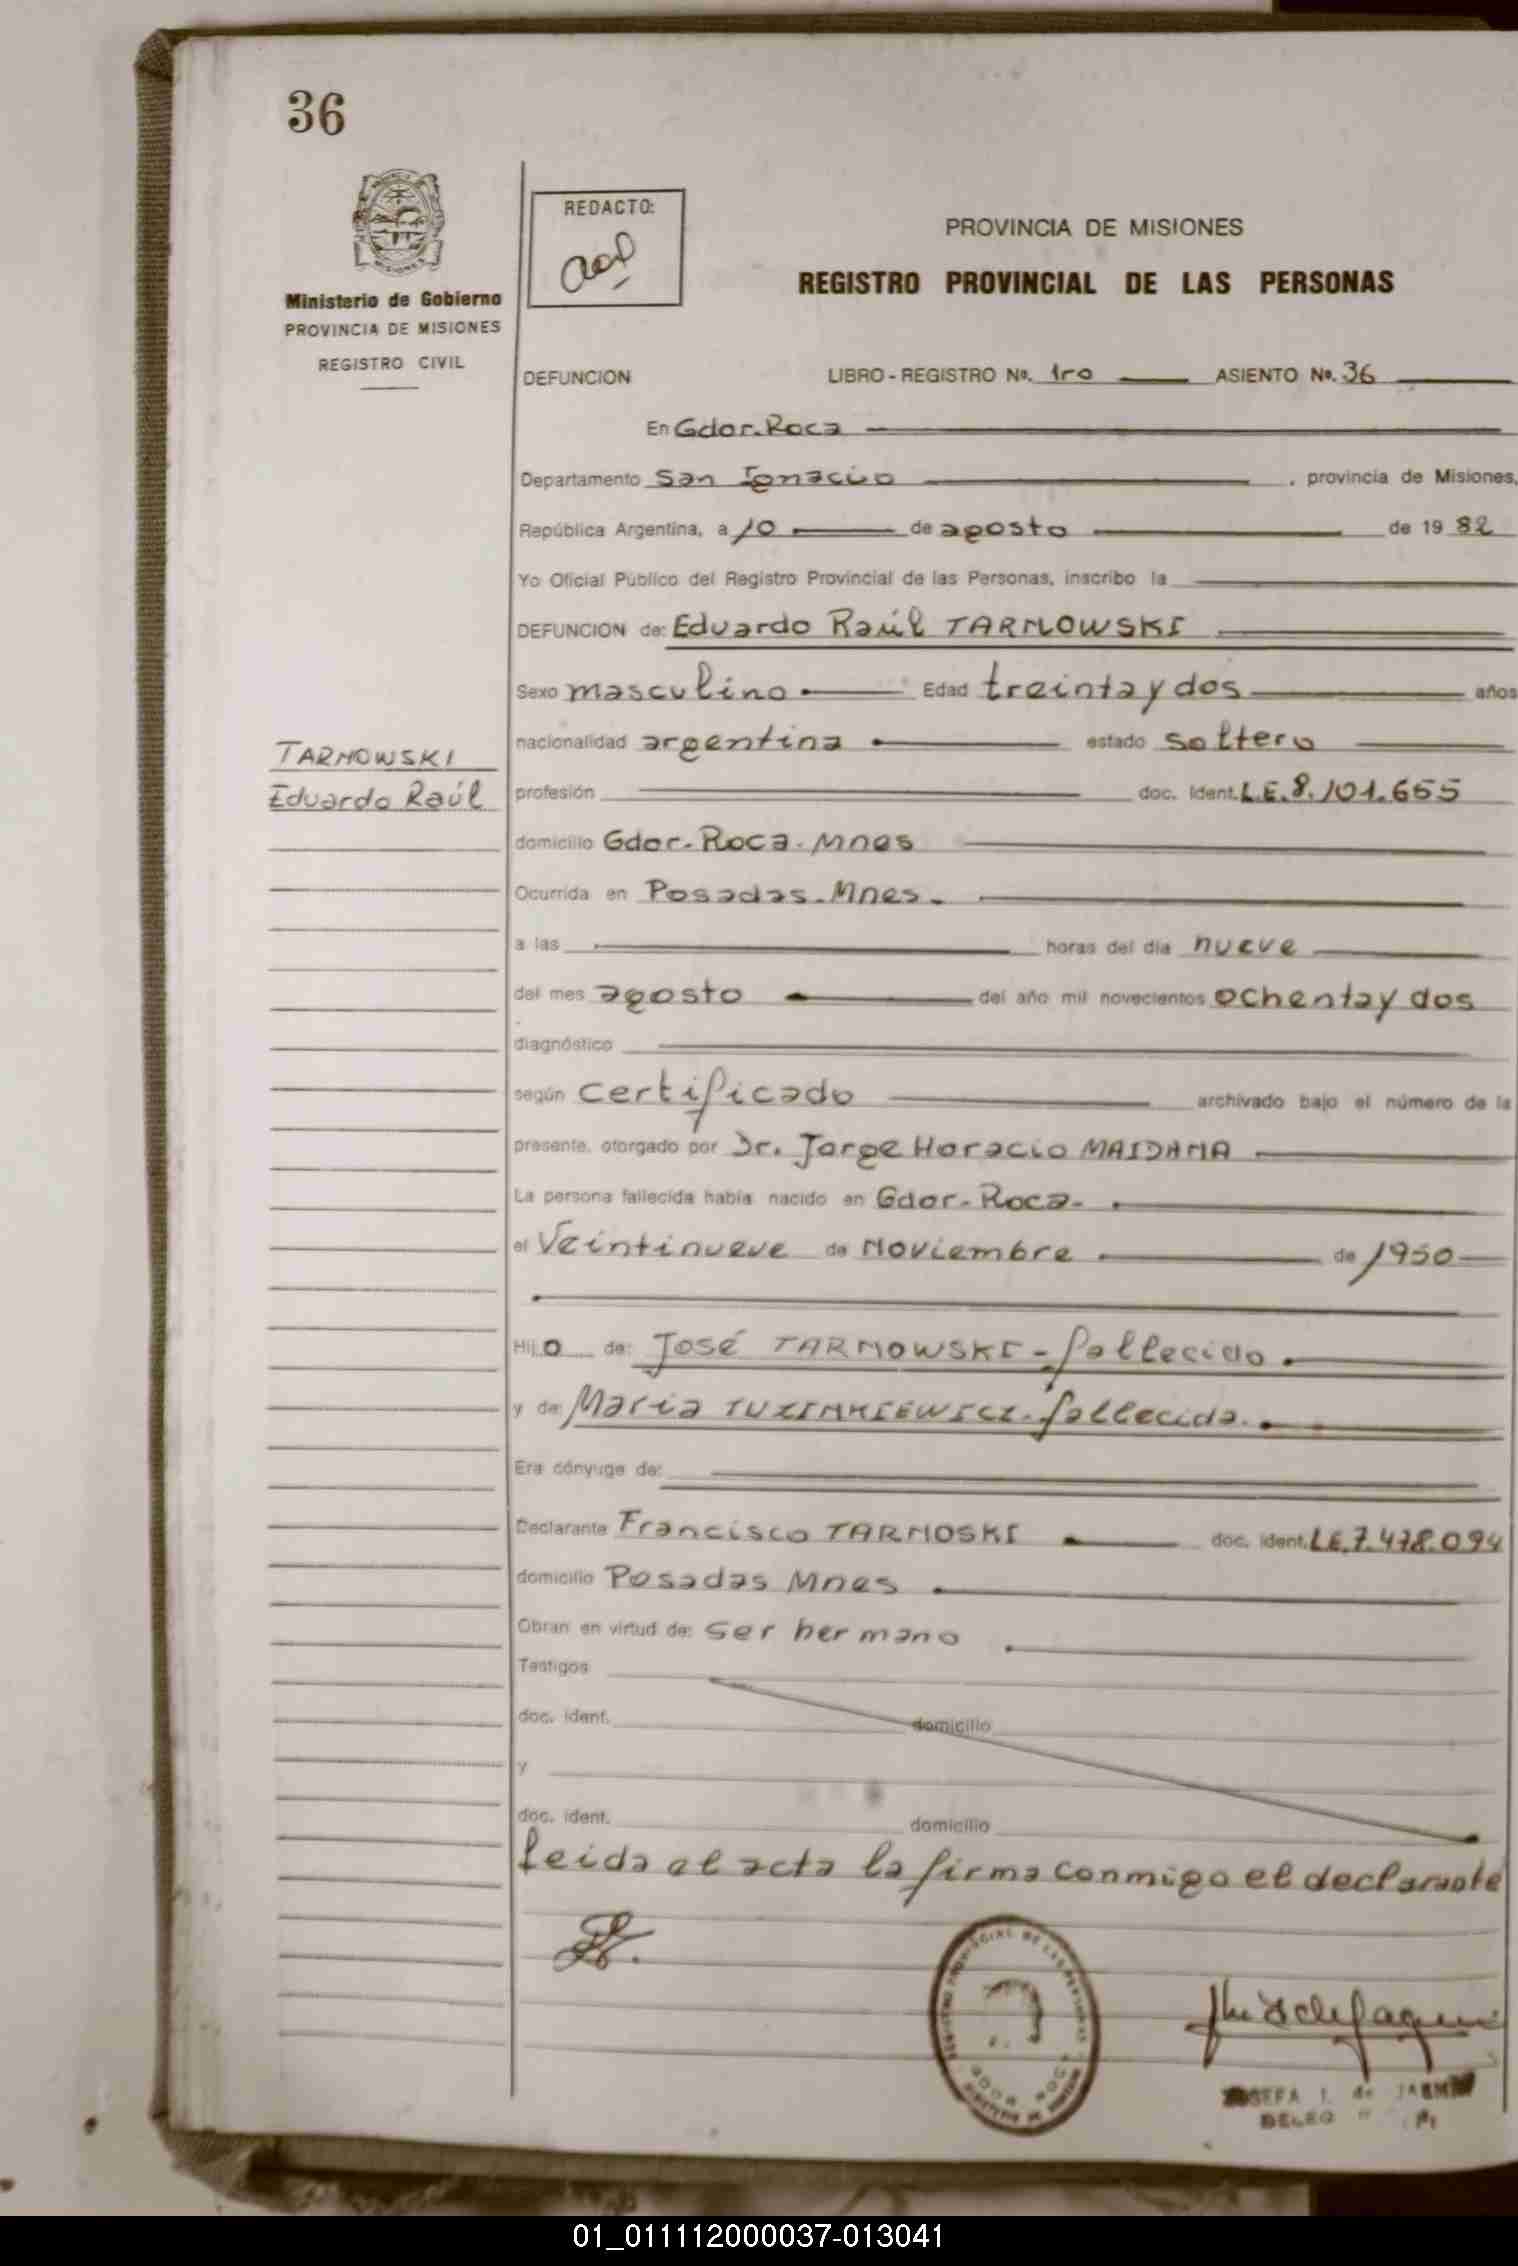 36
Ministerio de Gobierno
PROVINCIA DE MISIONES
REGISTRO CIVIL
REDACTO:
PROVINCIA DE MISIONES
REGISTRO PROVINCIAL DE LAS PERSONAS
DEFUNCION LIBRO - REGISTRO Nº. 1ro ASIENTO Nº. 36
En Gdor. Roca
Departamento San Ignacio , provincia de Misiones,
República Argentina, a 10 de agosto de 19 82
Yo Oficial Público del Registro Provincial de las Personas, inscribo la
DEFUNCION de: Eduardo Raúl TARNOWSKI
Sexo masculino Edad treinta y dos años
nacionalidad argentina estado soltero
TARNOWSKI
Eduardo Raúl
profesión doc. Ident. L.E. 8.101.655
domicilio Gdor. Roca. Mnes
Ocurrida en Posadas. Mnes.
a las horas del día nueve
del mes agosto del año mil novecientos ochenta y dos
diagnóstico
según certificado archivado bajo el número de la
presente, otorgado por Dr. Jorge Horacio MAIDANA
La persona fallecida había nacido en Gdor. Roca.
el Veintinueve de Noviembre de 1950
Hijo de: José TARNOWSKI - fallecido.
y de: María fallecida.
Era cónyuge de:
Declarante Francisco TARNOSKI doc. ident. L.E. 7.478.094
domicilio Posadas Mnes
Obran en virtud de: ser hermano
Testigos
doc. ident. domicilio
y
doc. ident. domicilio
Leida el acta la firma conmigo el declarante
01_011112000037-013041